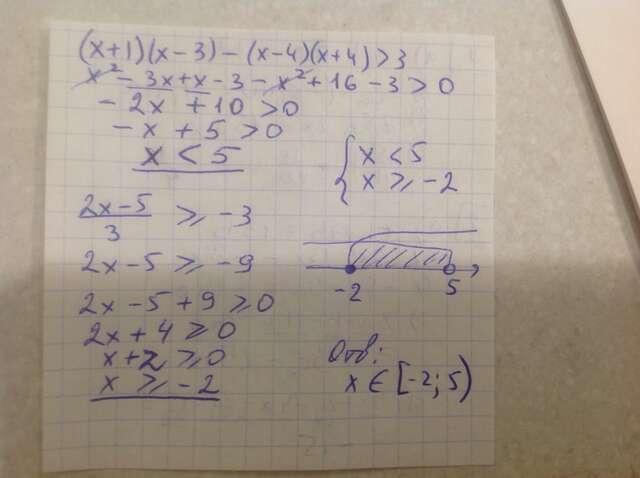 (x+1)(x-3)-(x-4)(x+4)>3
x²-3x+x-3-x²+16-3>0
-2x+10>0
-x+5>0
x<5
2x-5/3 ⩾ -3
2x-5 ⩾ -9
2x-5+9 ⩾ 0
2x+4 ⩾ 0
x+2 ⩾ 0
x ⩾ -2
{ x<5
x ⩾ -2
-2 5
Отв:
x ∈ [-2; 5)